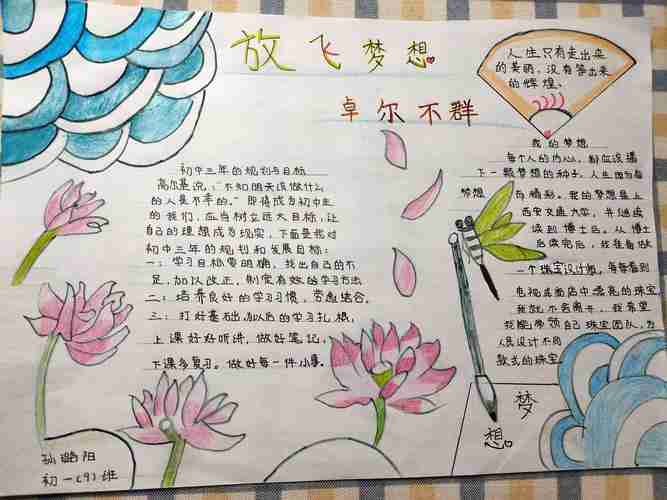 放飞梦想
卓尔不群
人生只有走出来
的美丽，没有等出来
的辉煌、
初中三年的规划与目标
高尔基说：“不知明天该做什么
的人是不幸的。”即将成为初中生
的我们，应当树立远大目标，让
自己的理想成为现实，下面是我对
初中三年的规划和发展目标：
一：学习目标要明确，找出自己的不
足，加以改正，制定有效的学习方法
二：培养良好的学习习惯，劳逸结合。
三：打好基础，为以后的学习扎根，
上课好好听讲，做好笔记，
下课多复习。做好每一件小事。
我的梦想
每个人的内心，都应该播
下一颗梦想的种子，人生因为有
梦想 而精彩。我的梦想是上
西安交通大学，并继续
读到博士后。从博士
后读完后，我准备做
一个珠宝设计师，每每看到
电视或商店中漂亮的珠宝
我就不舍离开，我希望
我能带领自己珠宝团队，为
人民设计不同
款式的珠宝
梦
想
孙璐阳
初一（9）班